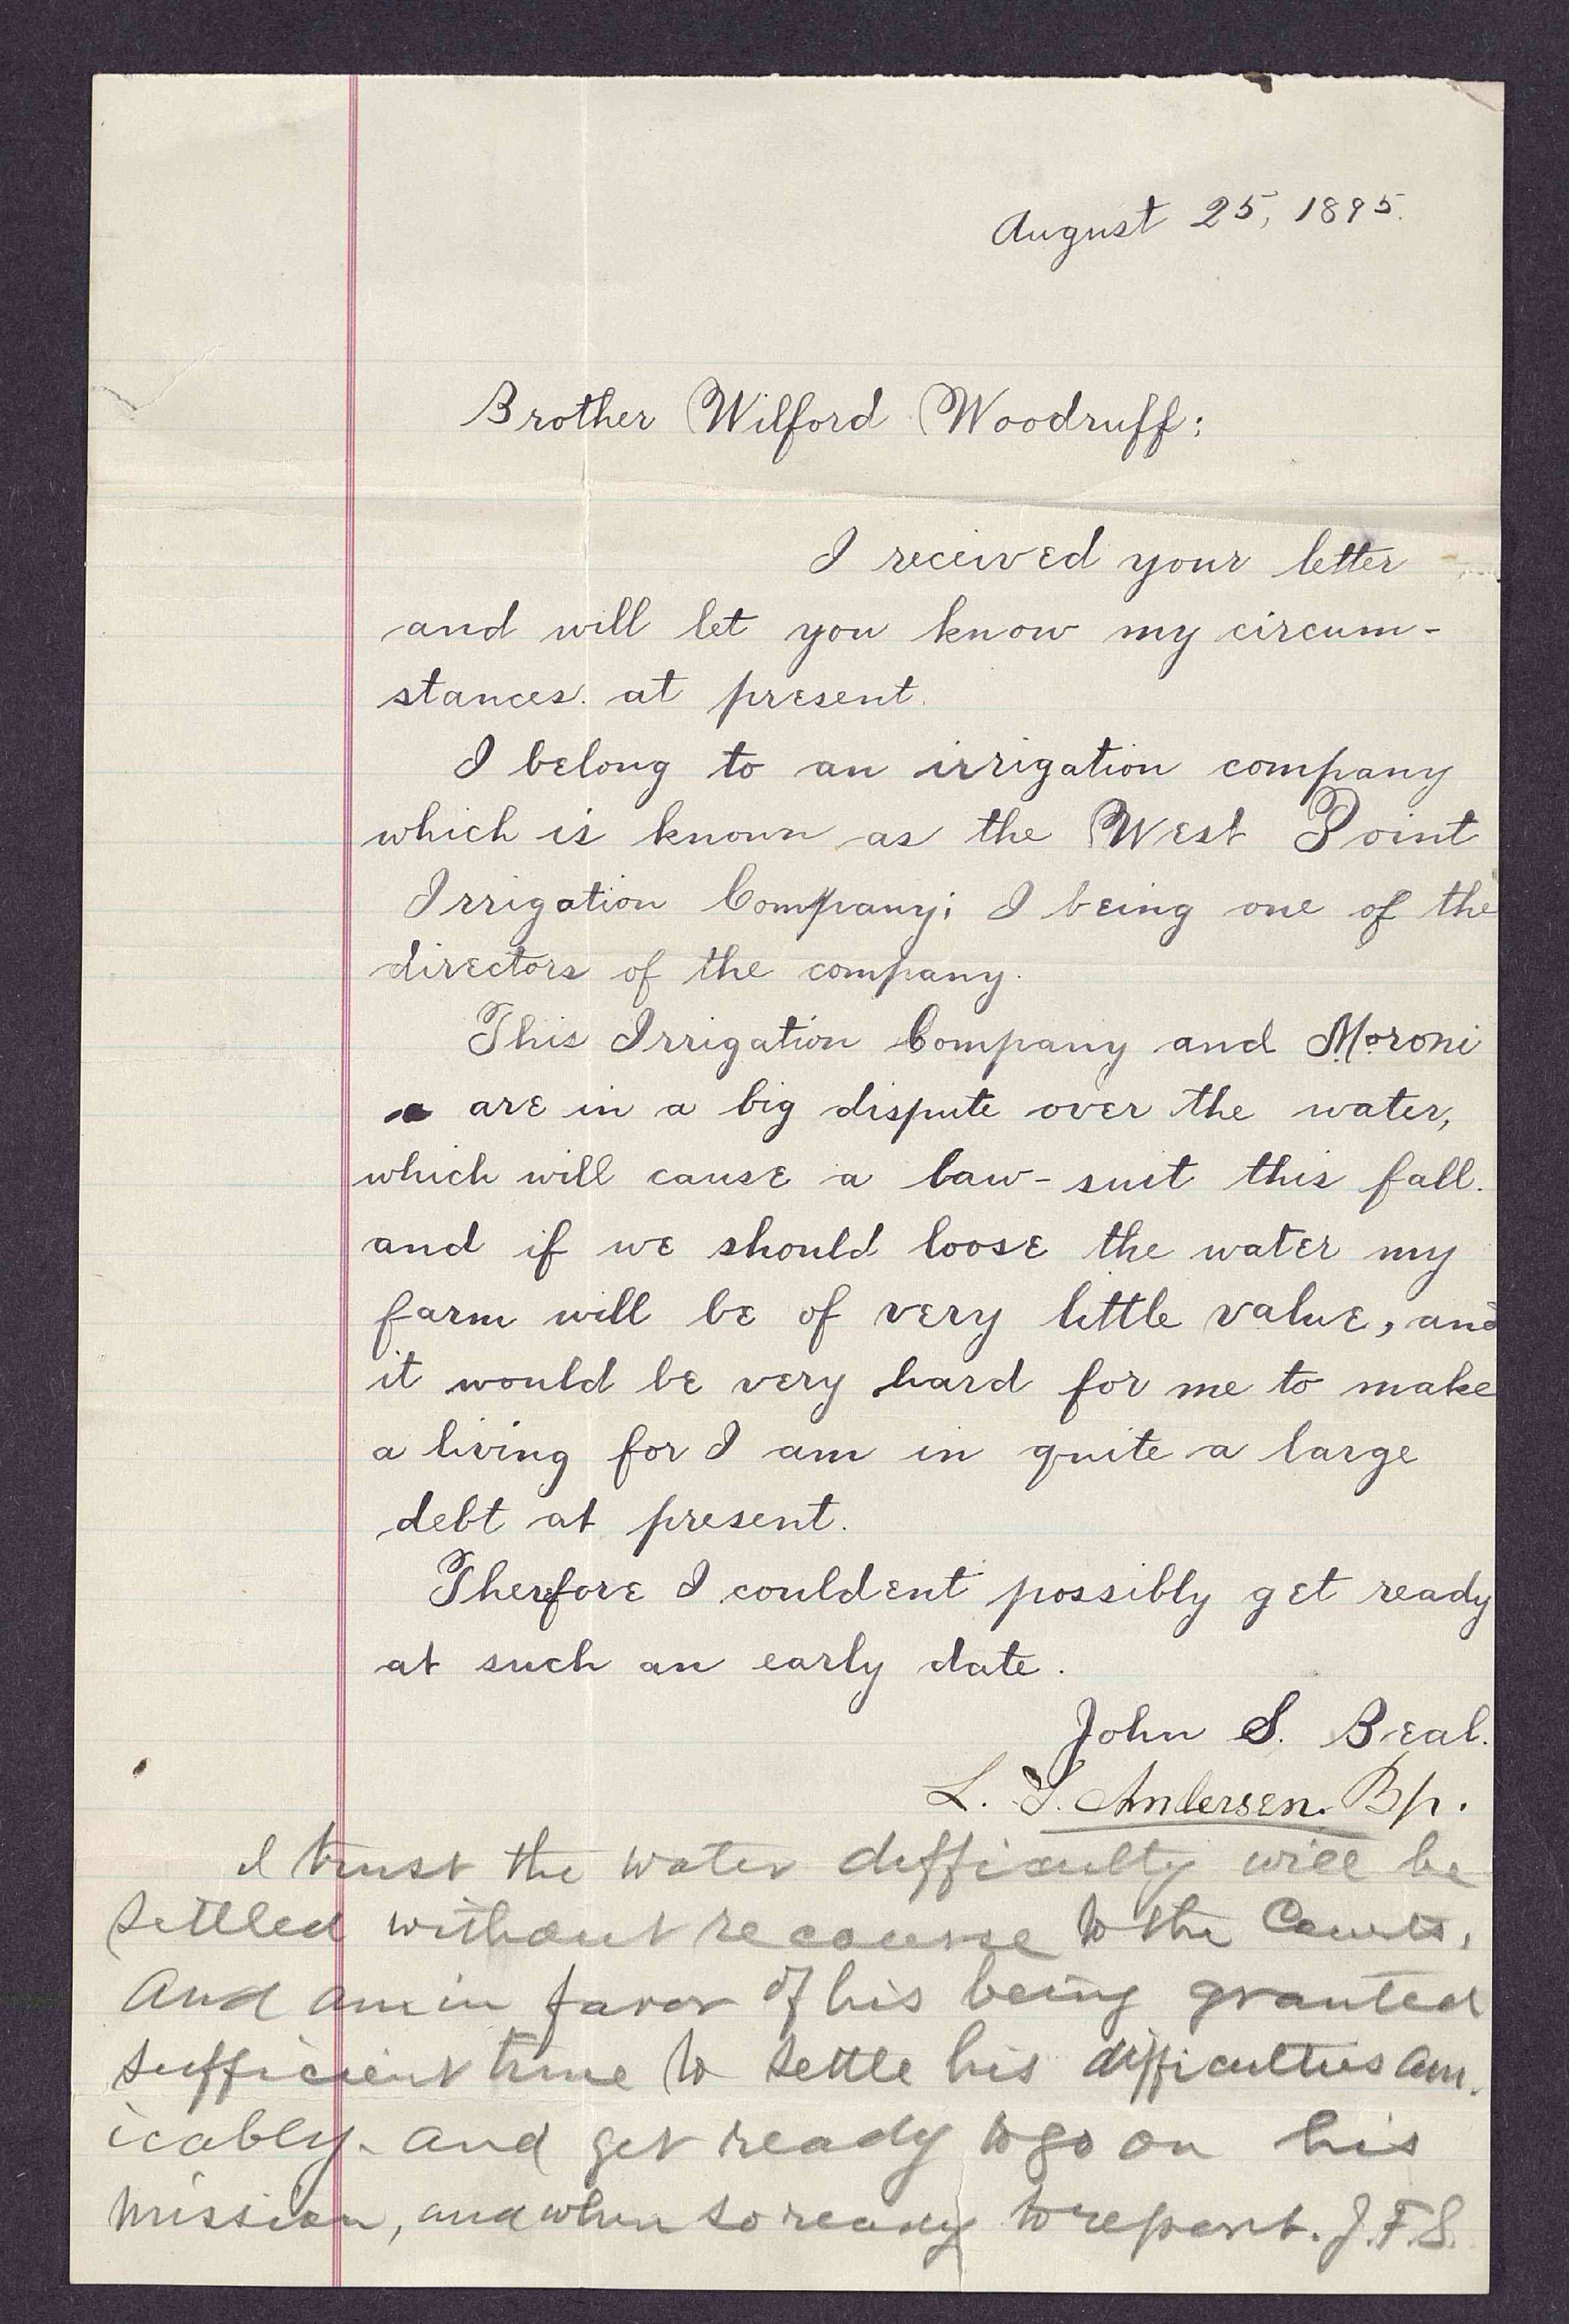 August 25, 1895.
Brother Wilford Woodruff:
I received your letter
and will let you know my circum-
stances. at present.
I belong to an irrigation company
which is known as the West Point
Irrigation Company; I being one of the
directors of the company.
This Irrigation Company and Moroni
are in a big dispute over the water,
which will cause a law-suit this fall.
and if we should loose the water my
farm will be of very little value, and
it would be very hard for me to make
a living for I am in quite a large
debt at present.
Therefore I couldent possibly get ready
at such an early date.
John S. Beal.
L. S. Andersen. Bp.
I trust the water difficulty will be
settled without recourse to the Courts,
And am in favor of his being granted
sufficient time to settle his difficulties am-
icably. and get ready to go on his
mission, and when so ready to report. J.F.S.